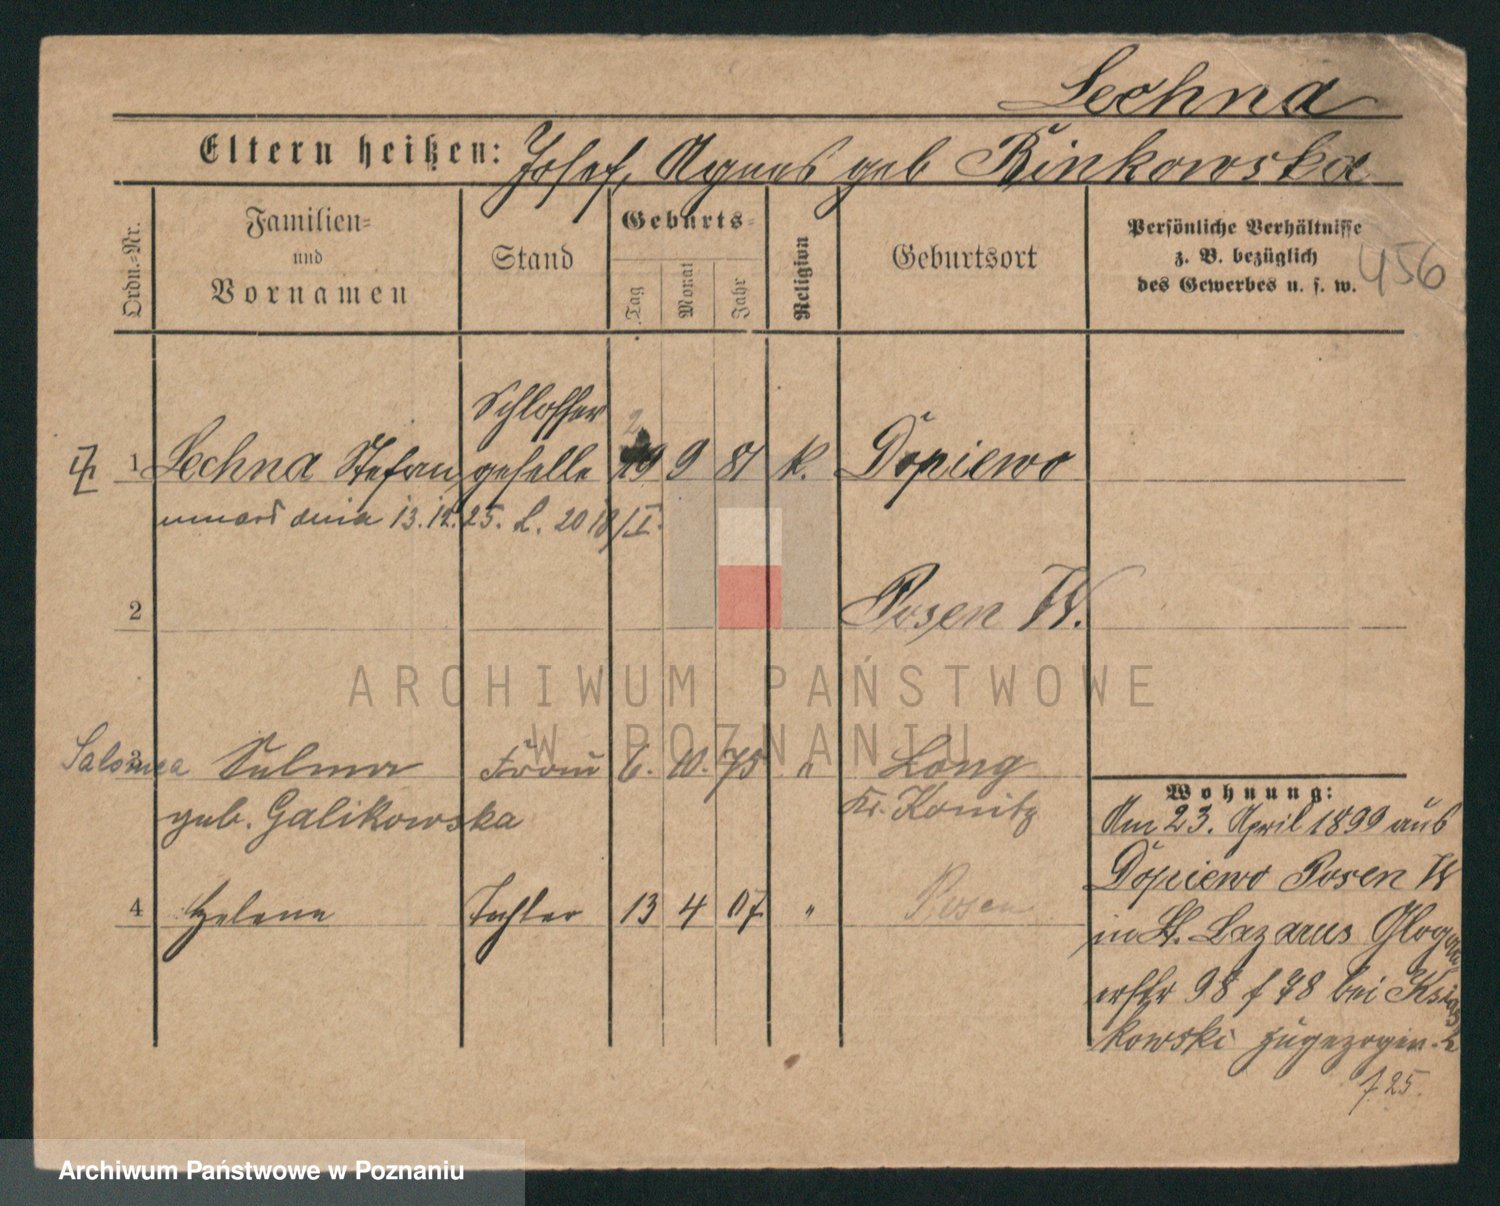 Lechna
Eltern heißen: Josef, Agnes geb Binkowska
Ordn.-Nr.
Familien-
und
Vornamen
Stand
Geburts-
Tag
Monat
Jahr
Religion
Geburtsort
Persönliche Verhältnisse
z. B. bezüglich
des Gewerbes u. s. w.
456
Schlosser
1 Lechna Stefan geselle 9 81 k. Dopiewo
umarł dnia 13.12.25. L. 2018/I.
2 Posen W.
3 Salomea Frau 6. 10. 75 " Long
geb. Galikowska Kr. Konitz
4 Helena Tochter 13 4 07 " Posen
Wohnung:
Am 23. April 1899 aus
Dopiewo Posen W
in St. Lazarus Glogau
erstr 98 f 78 bei
kowski zugezogen.
f 25.
ARCHIWUM PAŃSTWOWE
W POZNANIU
Archiwum Państwowe w Poznaniu